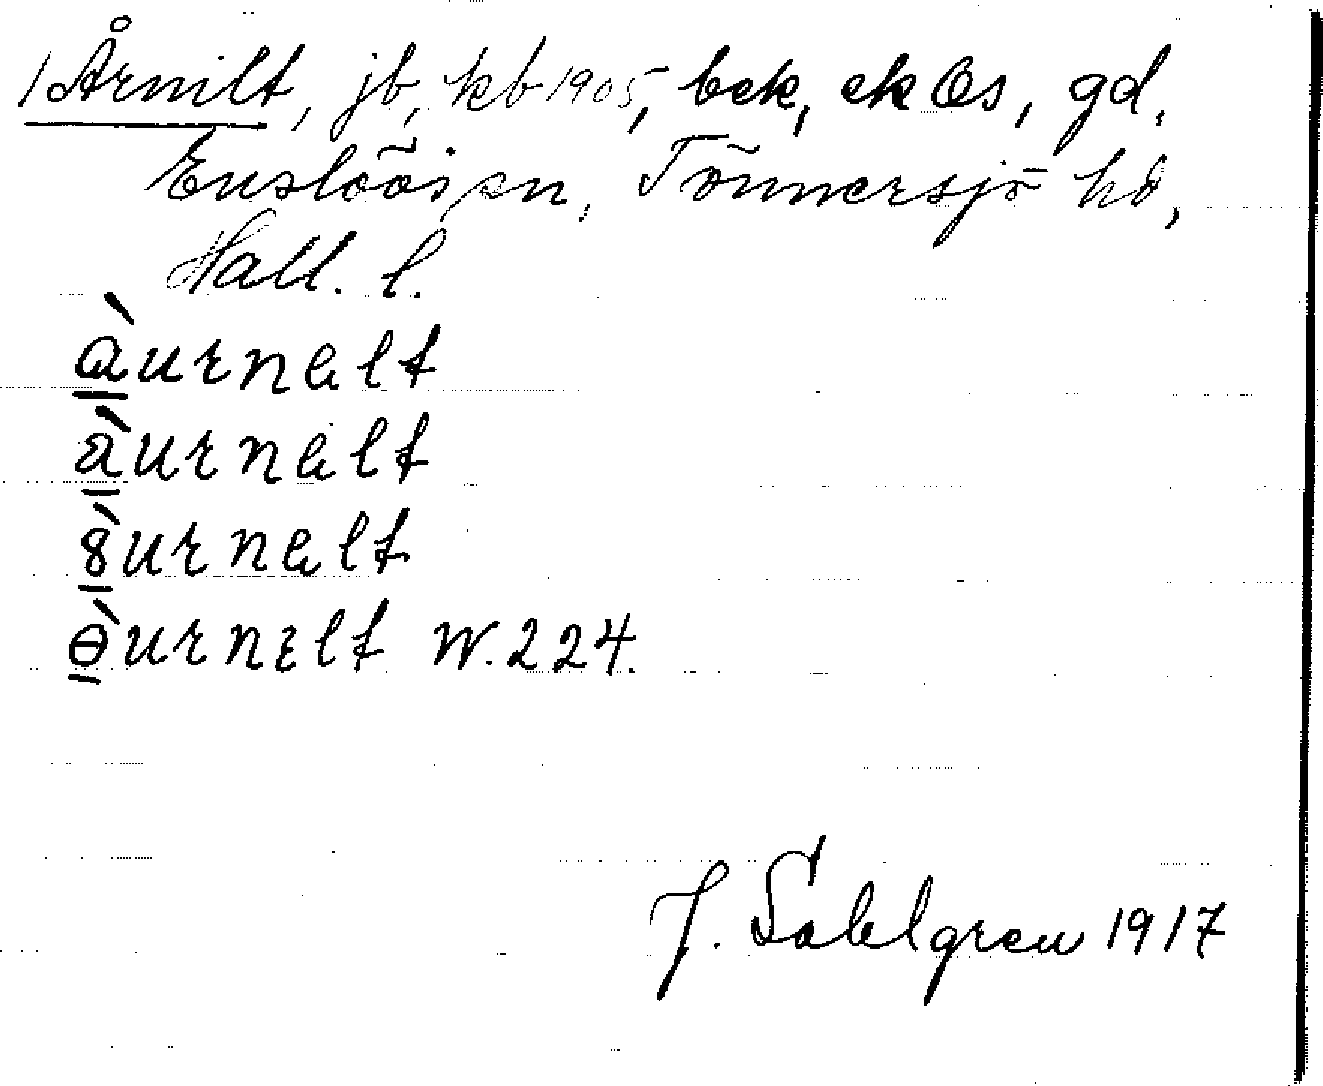 1 Årnilt, jb, kb 1905, bek, ek Os, gd,
Enslövs sn, Tönnersjö hd,
Hall. l.
à̠urnelt
ä̠̀urnelt
8̠̀urnelt
ɵ̠̀urnɛlt W. 224.
J. Sahlgren 1917